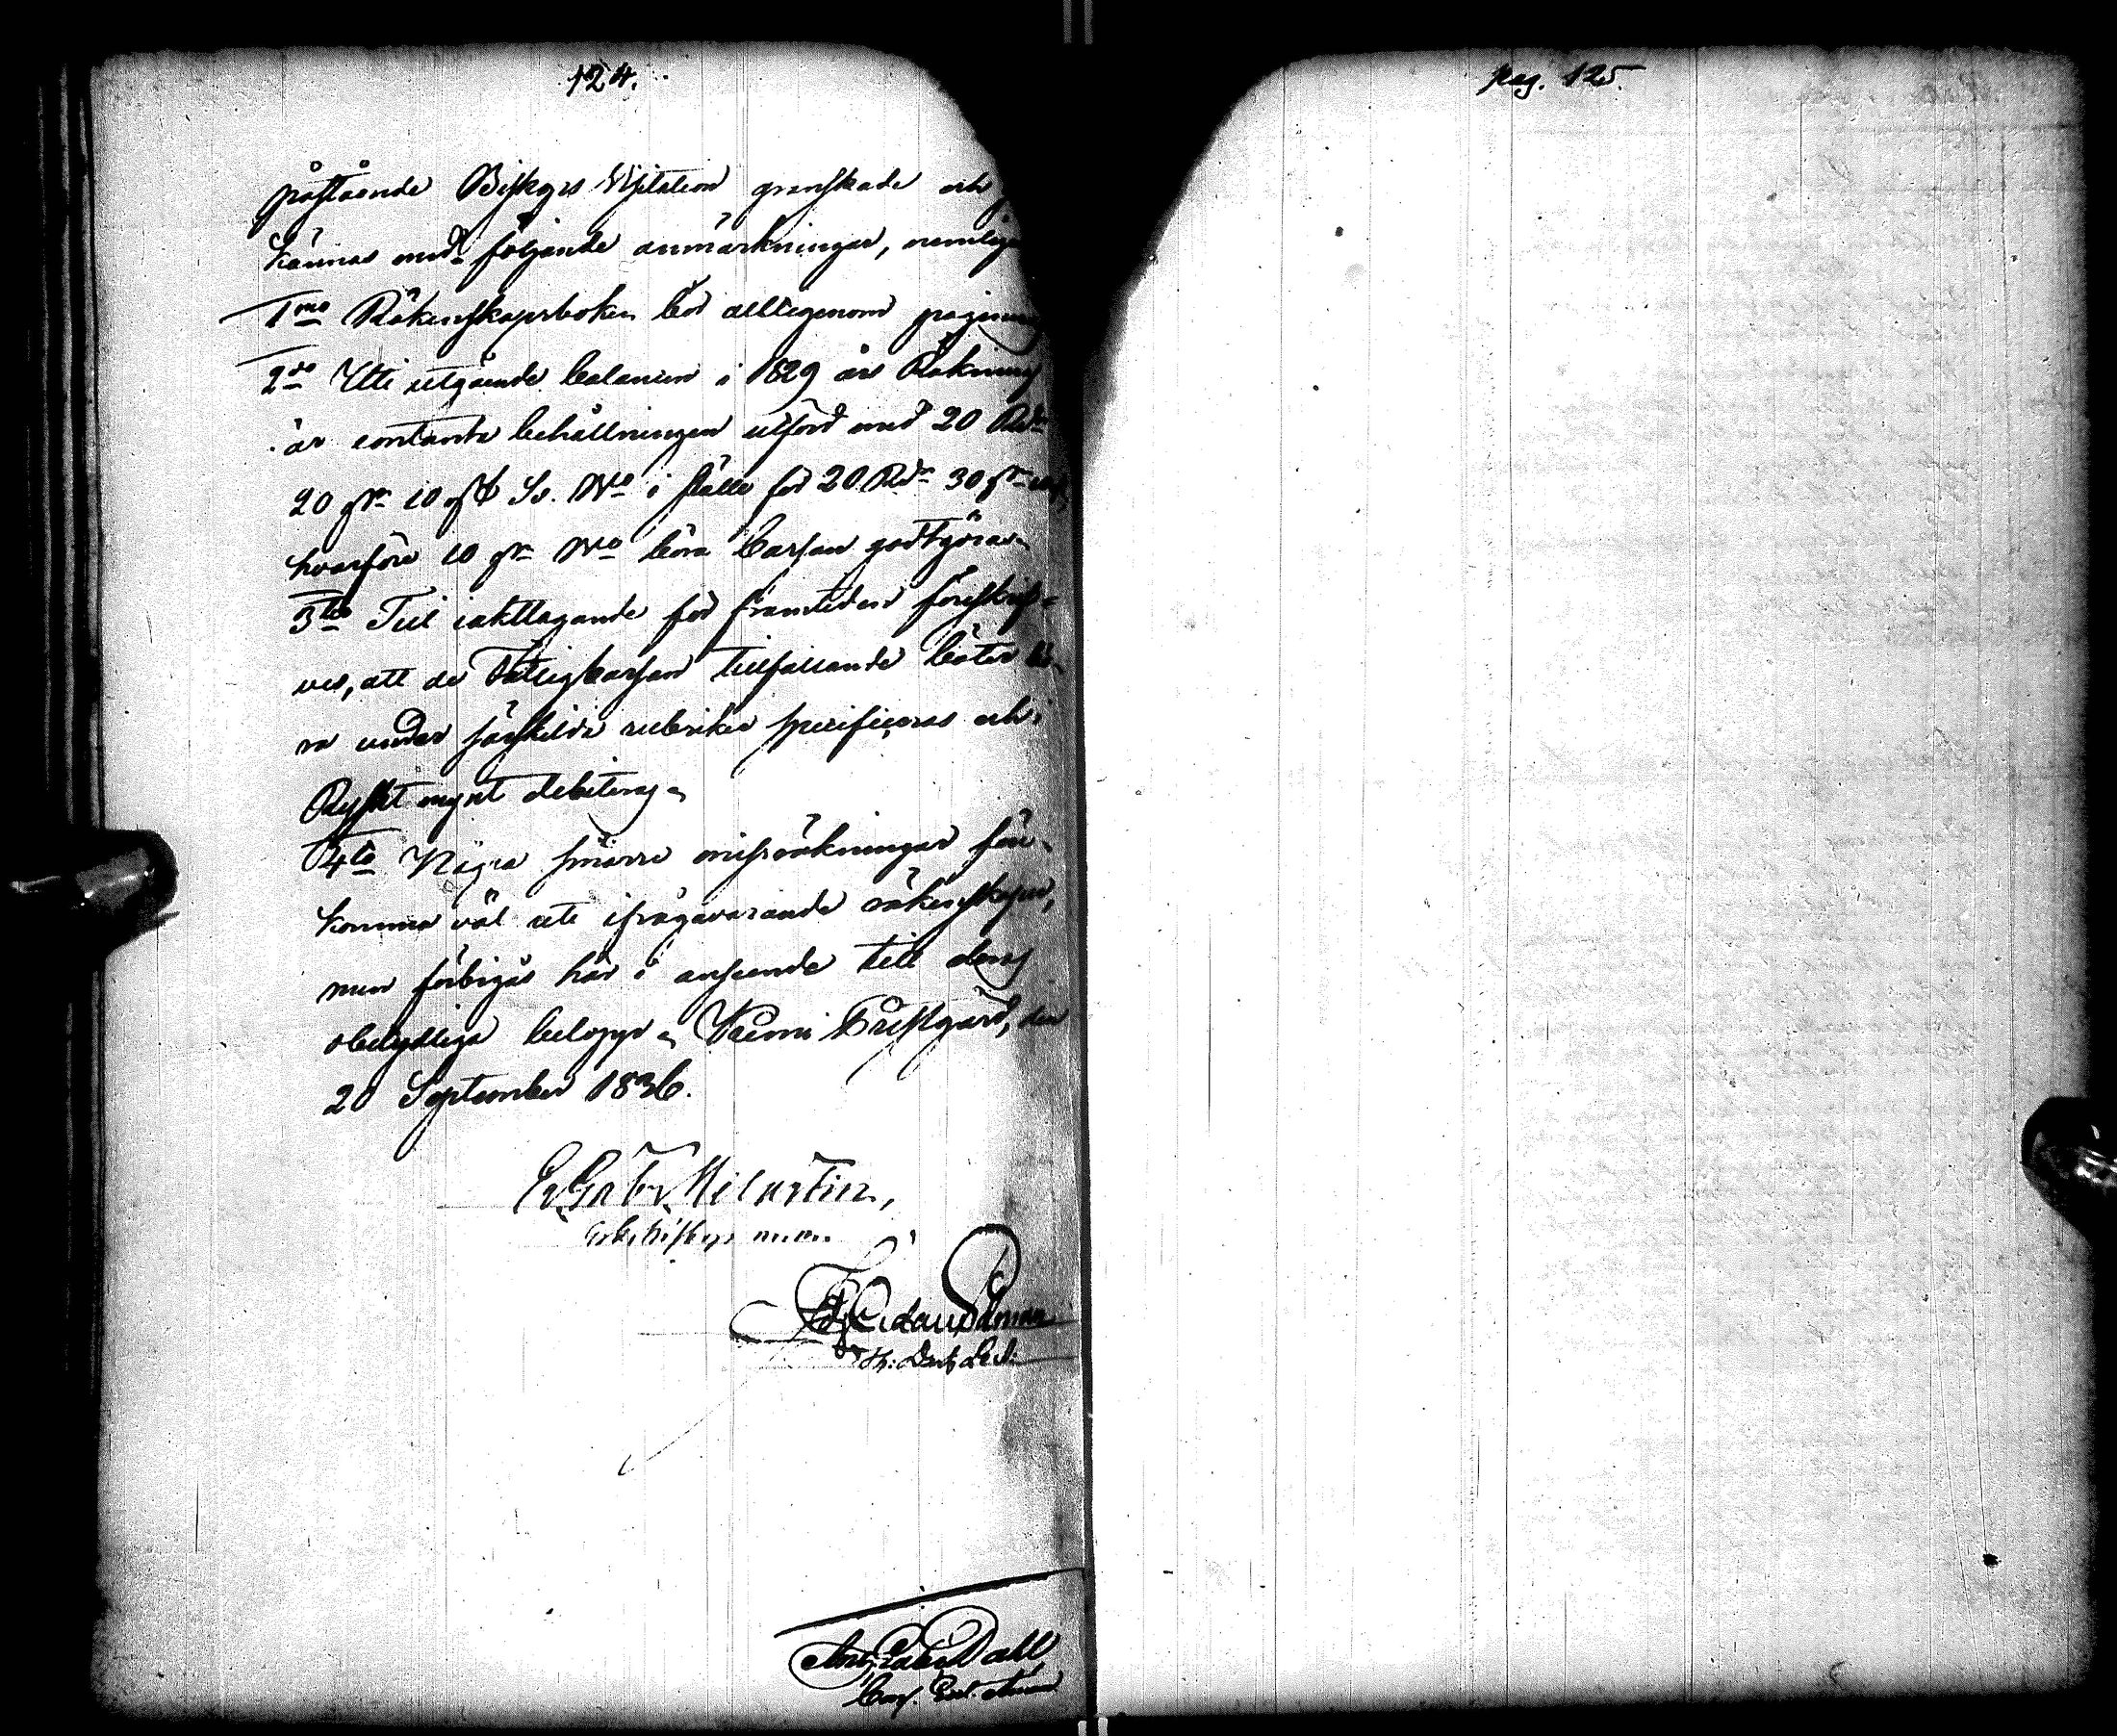 124.
påstående Biskops Visitation granskade och
kännas med följande anmärkningar, nemligen
1mo Räkenskapsboken bör alltigenom pagineras
2do Uti utgående balancen i 1829 års Räkning
är contanta behållningen utförd med 20 Rdr
20 sk 10 rst Sv. Mt i ställe för 20 Rdr 30 sk
hvarföre 10 sk böra Cassan godtgöras
3tio Till iakttagande för framtiden föreskrif=
ves, att de Fattigcassan tillfallande böter bö-
ra under särskilda rubriker specificeras och i
Ryskt mynt debiteras
4to Några smärre missräkningar före-
komma väl uti ifrågavarande räkenskaper,
men förbigås här i anseende till deras
obetydliga belopp. Kemi Prestgård, den
20 September 1836.
Er. Gabr. Melartin,
Erkebiskop m.m.
Dahl
Pag. 125.